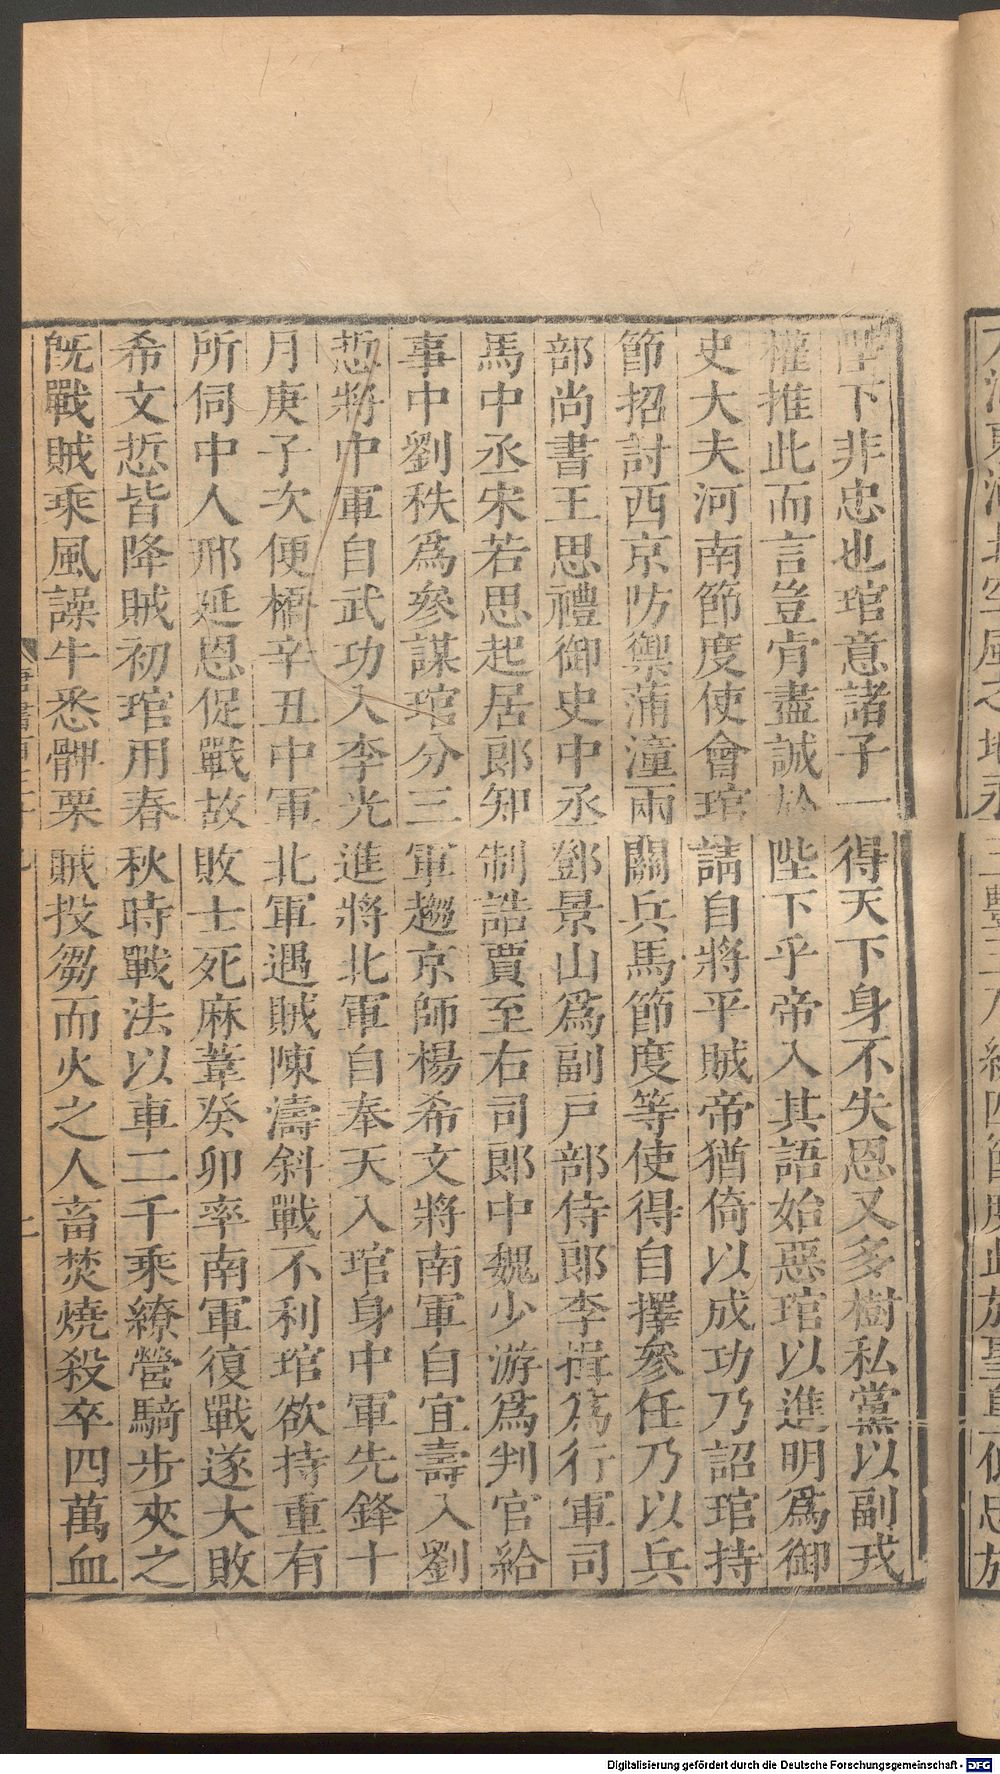 陛下非忠也琯意諸子一得天下身不失恩又多樹私黨以副戎
權推此而言豈肯盡誠於陛下乎帝入其語始惡琯以進明爲御
史大夫河南節度使會琯請自將平賊帝猶倚以成功乃詔琯持
節招討西京防禦蒲潼兩關兵馬節度等使得自擇參任乃以兵
部尚書王思禮御史中丞鄧景山爲副戶部侍郎李揖爲行軍司
馬中丞宋若思起居郎知制誥賈至右司郎中魏少游爲判官給
事中劉秩爲參謀琯分三軍趨京師楊希文將南軍自宜壽入劉
悊將中軍自武功入李光進將北軍自奉天入琯身中軍先鋒十
月庚子次便橋辛丑中軍北軍遇賊陳濤斜戰不利琯欲持重有
所伺中人邢延恩促戰故敗士死麻葦癸卯率南軍復戰遂大敗
希文悊皆降賊初琯用春秋時戰法以車二千乘繚營騎步夾之
旣戰賊乘風譟牛悉髀栗賊投芻而火之人畜焚燒殺卒四萬血
Digitalisierung gefördert durch die Deutsche Forschungsgemeinschaft - DFG